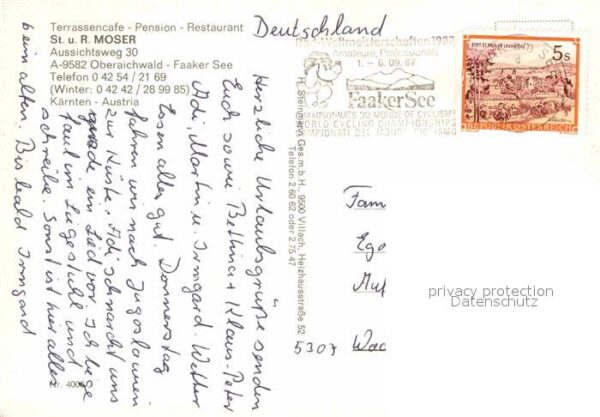 Terrassencafe - Pension - Restaurant
St. u. R. MOSER
Aussichtsweg 30
A-9582 Oberaichwald - Faaker See
Telefon 0 42 54 / 21 69
(Winter: 0 42 42 / 28 99 85)
Kärnten - Austria
Deutschland
Rad-Weltmeisterschaften 1987
Amateure, Professionals
1. – 6. 09. 87
FaakerSee
CHAMPIONNATS DU MONDE DE CYCLISME
WORLD CYCLING CHAMPIONSHIPS
CAMPIONATI DEL MONDO CICLISMO
STIFT ST. PAUL IM LAVANTTAL
5s
REPUBLIK ÖSTERREICH
Herzliche Urlaubsgrüße senden
Euch sowie Bettina + Klaus-Peter
Adi, Martin u. Irmgard. Wetter
alles gut. Donnerstag
fahren wir nach Jugoslawien
zur Küste. Adi schnarcht uns
gerade ein Lied vor. Ich liege
faul im Liegestuhl und
schreibe. Sonst ist hier alles
beim alten. Bis bald Irmgard
H. Steinmann Ges.m.b.H., 9500 Villach, Heizhausstraße 52
Telefon 2 60 62 oder 2 75 47
Fam
Ego
Muf
5307 Wac
privacy protection
Datenschutz
Nr. 4006